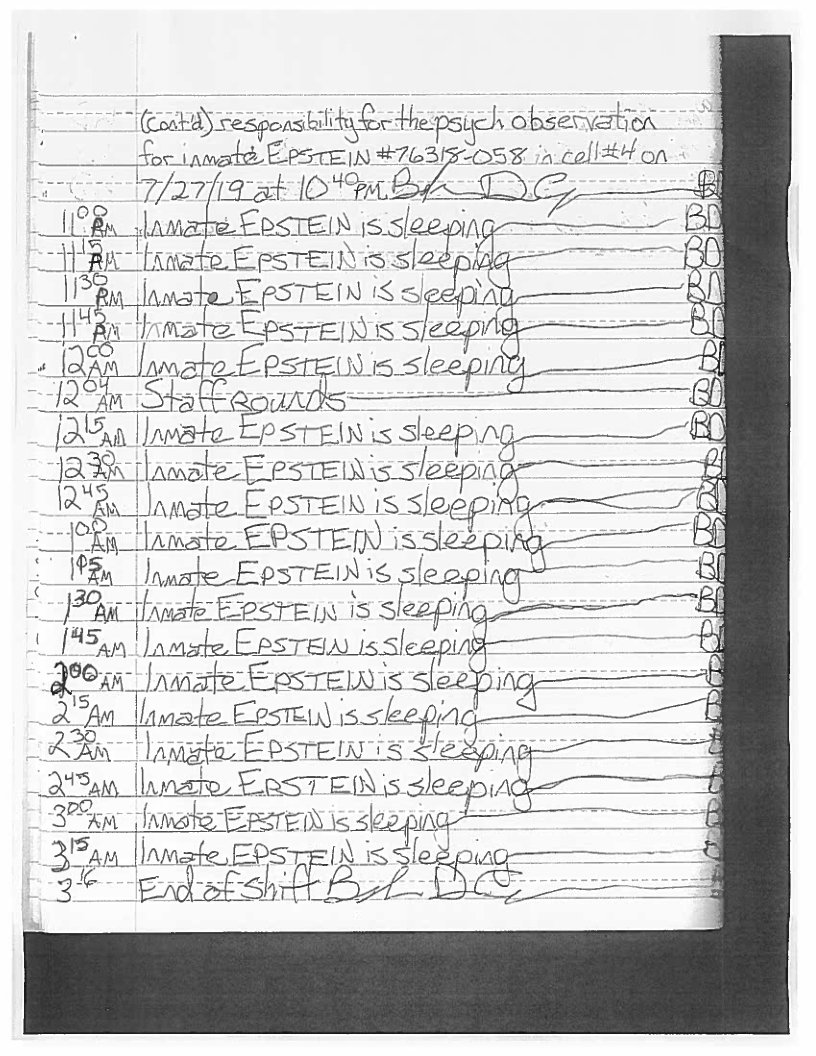 (Cont'd) responsibility for the psych observation
for inmate EPSTEIN #76318-058 in cell #4 on
7/27/19 at 10 40 PM
11 00 PM Inmate EPSTEIN is sleeping BD
11 15 PM Inmate EPSTEIN is sleeping BD
11 30 PM Inmate EPSTEIN is sleeping BD
11 45 PM Inmate EPSTEIN is sleeping BD
12 00 AM Inmate EPSTEIN is sleeping BD
12 04 AM Staff Rounds BD
12 15 AM Inmate EPSTEIN is sleeping BD
12 30 AM Inmate EPSTEIN is sleeping
12 45 AM Inmate EPSTEIN is sleeping BD
1 00 AM Inmate EPSTEIN is sleeping BD
1 15 AM Inmate EPSTEIN is sleeping BD
1 30 AM Inmate EPSTEIN is sleeping BD
1 45 AM Inmate EPSTEIN is sleeping
2 00 AM Inmate EPSTEIN is sleeping
2 15 AM Inmate EPSTEIN is sleeping
2 30 AM Inmate EPSTEIN is sleeping
2 45 AM Inmate EPSTEIN is sleeping
3 00 AM Inmate EPSTEIN is sleeping
3 15 AM Inmate EPSTEIN is sleeping
3 16 End of Shift